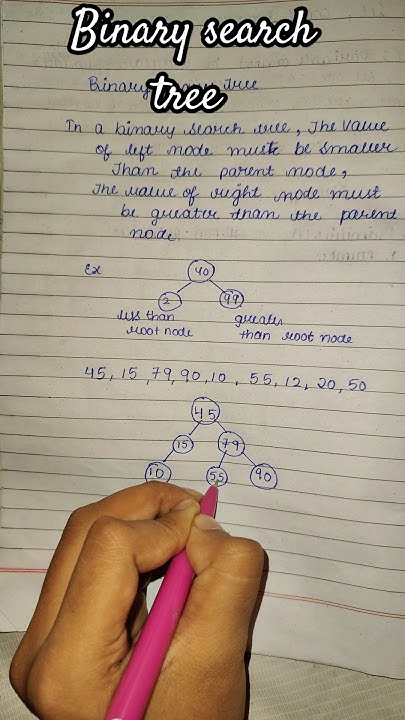 Binary search
tree
Binary Tree
In a binary search tree, The value
of left node must be smaller
Than the parent node,
The value of right node must
be greater than the parent
node
Ex
40
2 99
less than greater
root node than root node
45, 15, 79, 90, 10, 55, 12, 20, 50
45
15 79
10 55 90